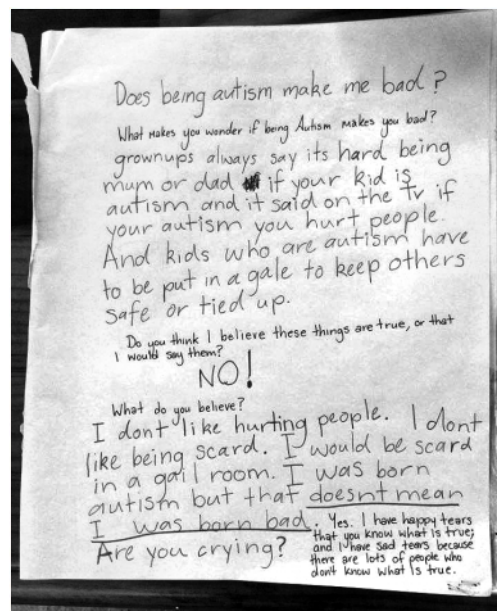 Does being autism make me bad?
What makes you wonder if being Autism makes you bad?
grownups always say its hard being
mum or dad if your kid is
autism and it said on the Tv if
your autism you hurt people.
And kids who are autism have
to be put in a gale to keep others
safe or tied up.
Do you think I believe these things are true, or that
I would say them?
NO!
What do you believe?
I dont like hurting people. I dont
like being scard. I would be scard
in a gail room. I was born
autism but that doesnt mean
I was born bad.
Yes. I have happy tears
that you know what is true;
and I have sad tears because
there are lots of people who
don't know what is true.
Are you crying?